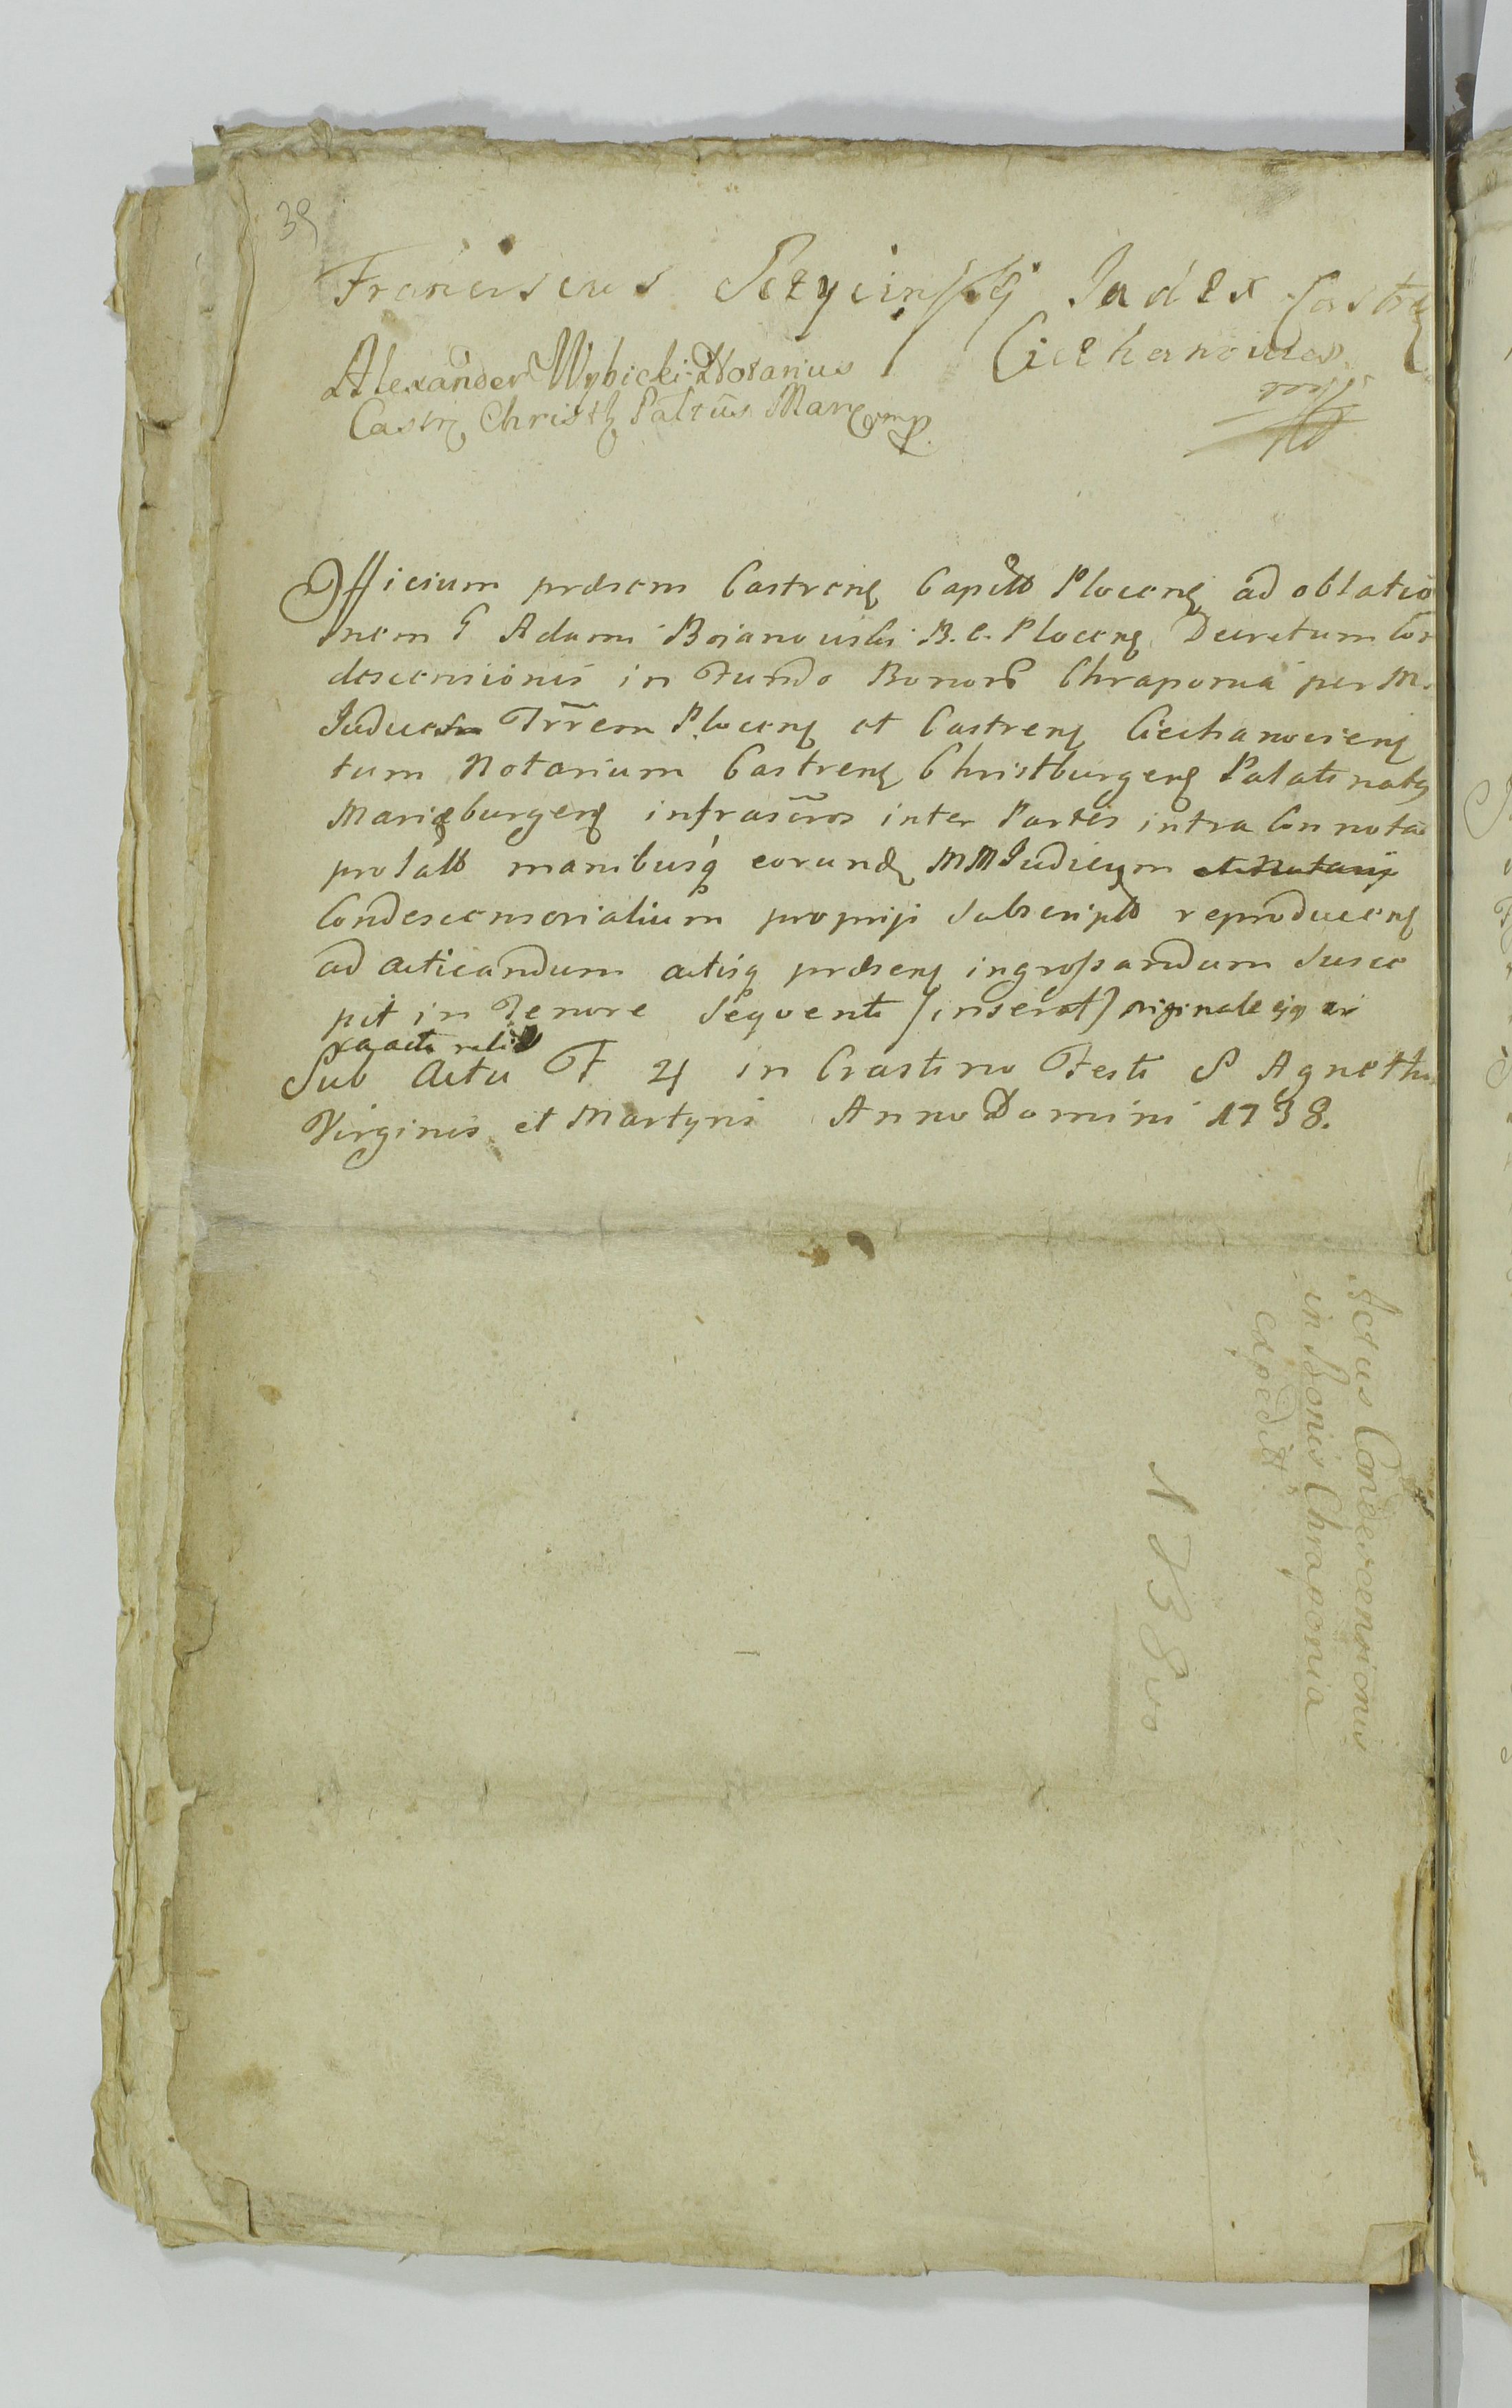 39
Franciscus Sczycinsky Judex Castr
Alexander Wybicki Notarius
Ciechanovien
Castr Christb Paltus Marg mp.
Officium præsens Castren Capitto Plocen ad oblatio
nem G Adami Boianowski B. C. Plocen Decretum Con
descensionis in Fundo Bonor Chraponia per M.
Judicem Trrem Plocen et Castren Ciechanovien
tum Notarium Castren Christburgen Palatinatus
Mariæburgen infrascros inter Partes intra Connotas
prolatt manibusq eorund MM Judicum et Notarij
Condescensorialium proprijs Subscriptt reproducen
ad acticandum actisq præsen ingrossandum susce
pit in Tenore Sequenti /inserat/ originale
Sub Actu F 4 in Crastino Festi S Agnethis
Virginis et Martyris Anno Domini 1738.
Actus Condescensionis
in Bonis Chraponia
expeditt
1738vo